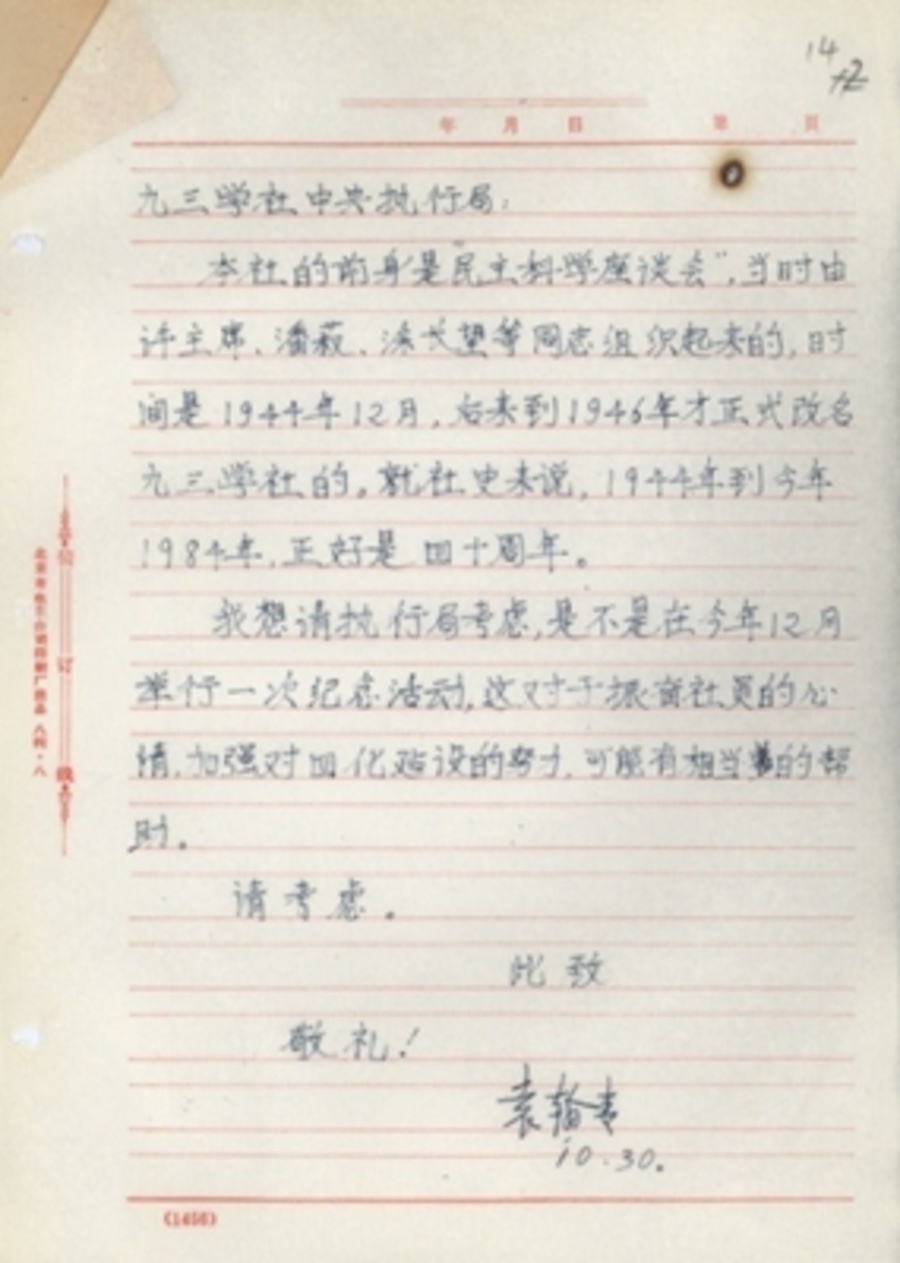 14
12
年 月 日 第 页
九三学社中央执行局:
本社的前身是民主科学座谈会",当时由
许主席、潘菽、涂长望等同志组织起来的,时
间是1944年12月,后来到1946年才正式改名
九三学社的。就社史来说,1944年到今年
1984年,正好是四十周年。
我想请执行局考虑,是不是在今年12月
举行一次纪念活动,这对于振奋社员的心
情,加强对四化建设的努力,可能有相当的帮
助。
请考虑。
此致
敬礼!
袁翰青
10.30.
订
线
(1456)